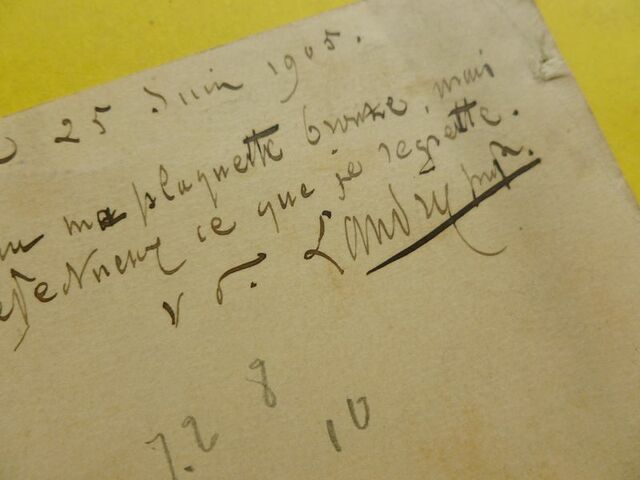 25 Juin 1905.
ma plaquette bronze, mais
ce que je regrette.
Landry
8
7.2 10